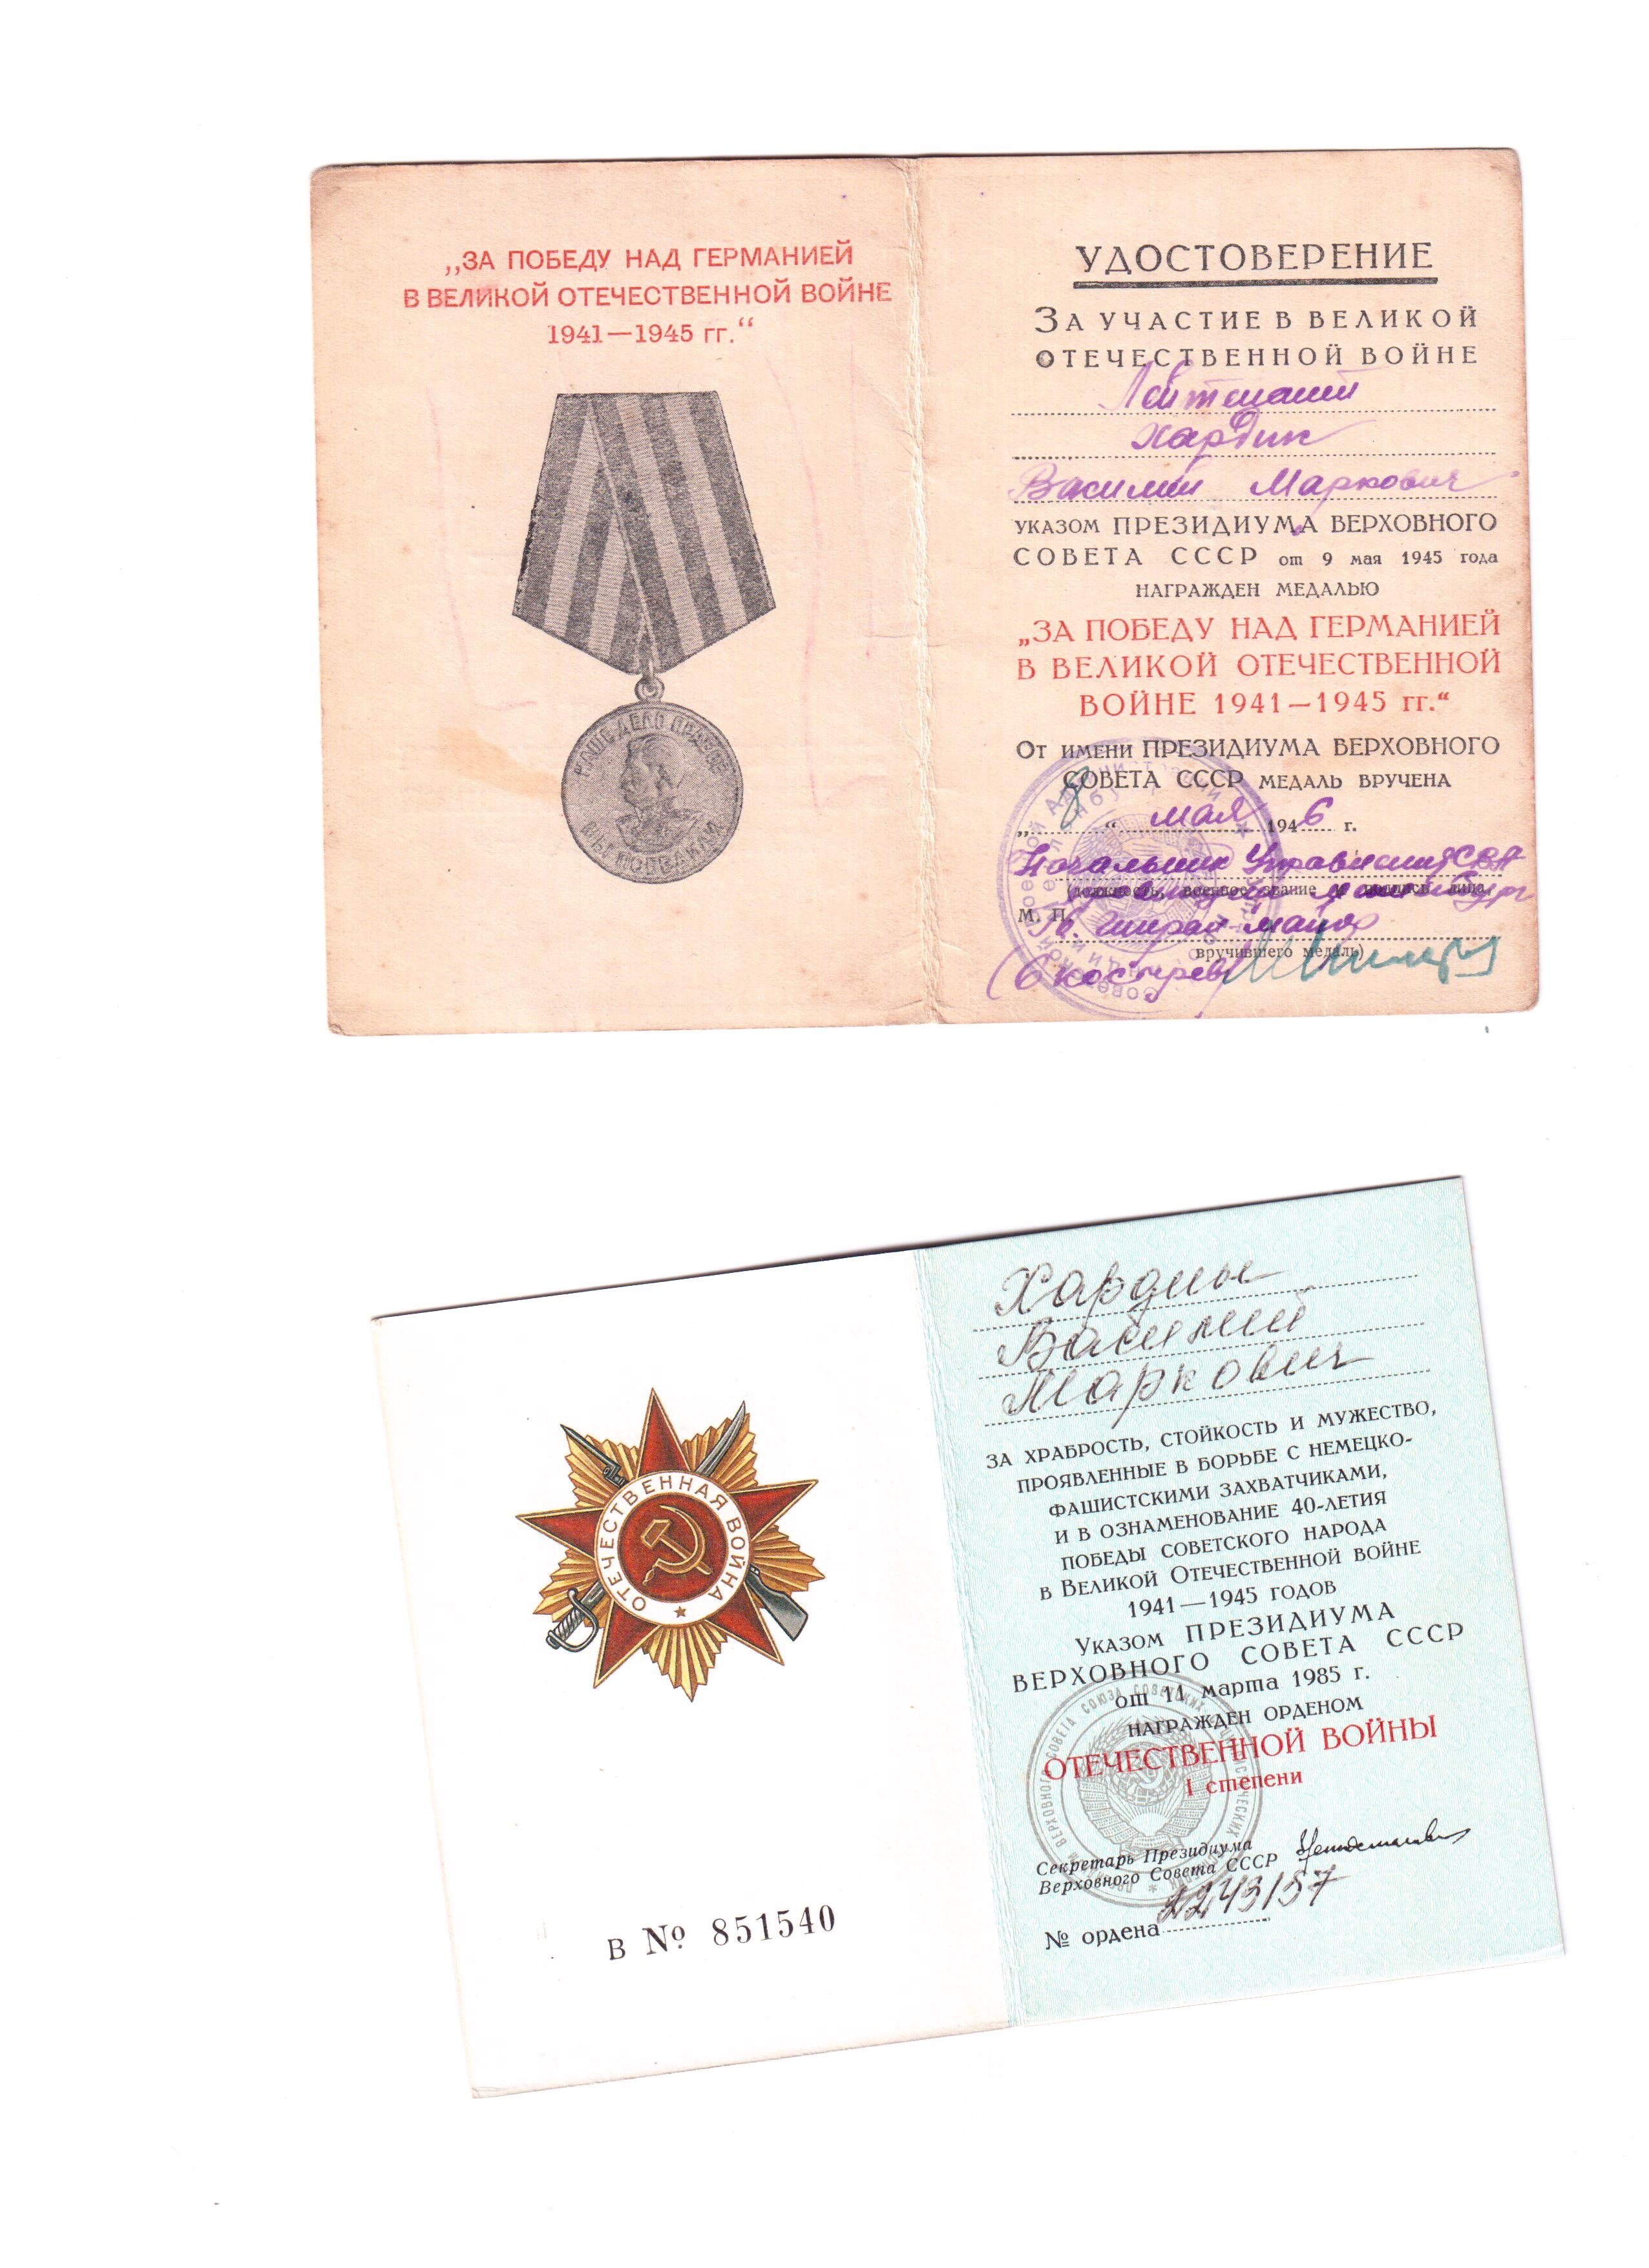 „ЗА ПОБЕДУ НАД ГЕРМАНИЕЙ
В ВЕЛИКОЙ ОТЕЧЕСТВЕННОЙ ВОЙНЕ
1941—1945 гг.“
НАШЕ ДЕЛО ПРАВОЕ
МЫ ПОБЕДИЛИ
УДОСТОВЕРЕНИЕ
ЗА УЧАСТИЕ В ВЕЛИКОЙ
ОТЕЧЕСТВЕННОЙ ВОЙНЕ
Лейтенант
Хардин
Василий Маркович
УКАЗОМ ПРЕЗИДИУМА ВЕРХОВНОГО
СОВЕТА СССР от 9 мая 1945 года
НАГРАЖДЕН МЕДАЛЬЮ
„ЗА ПОБЕДУ НАД ГЕРМАНИЕЙ
В ВЕЛИКОЙ ОТЕЧЕСТВЕННОЙ
ВОЙНЕ 1941—1945 гг.“
ОТ ИМЕНИ ПРЕЗИДИУМА ВЕРХОВНОГО
СОВЕТА СССР МЕДАЛЬ ВРУЧЕНА
„8“ мая 1946 г.
Начальник Управления СВА
(должность, военное звание и подпись лица,
М. П. майор
вручившего медаль)
Хардин
Василий
Маркович
ЗА ХРАБРОСТЬ, СТОЙКОСТЬ И МУЖЕСТВО,
ПРОЯВЛЕННЫЕ В БОРЬБЕ С НЕМЕЦКО-
ФАШИСТСКИМИ ЗАХВАТЧИКАМИ,
И В ОЗНАМЕНОВАНИЕ 40-ЛЕТИЯ
ПОБЕДЫ СОВЕТСКОГО НАРОДА
В ВЕЛИКОЙ ОТЕЧЕСТВЕННОЙ ВОЙНЕ
1941—1945 ГОДОВ
УКАЗОМ ПРЕЗИДИУМА
ВЕРХОВНОГО СОВЕТА СССР
от 11 марта 1985 г.
НАГРАЖДЕН ОРДЕНОМ
ОТЕЧЕСТВЕННОЙ ВОЙНЫ
I степени
Секретарь Президиума
Верховного Совета СССР
№ ордена 2243157
ОТЕЧЕСТВЕННАЯ ВОЙНА
В № 851540